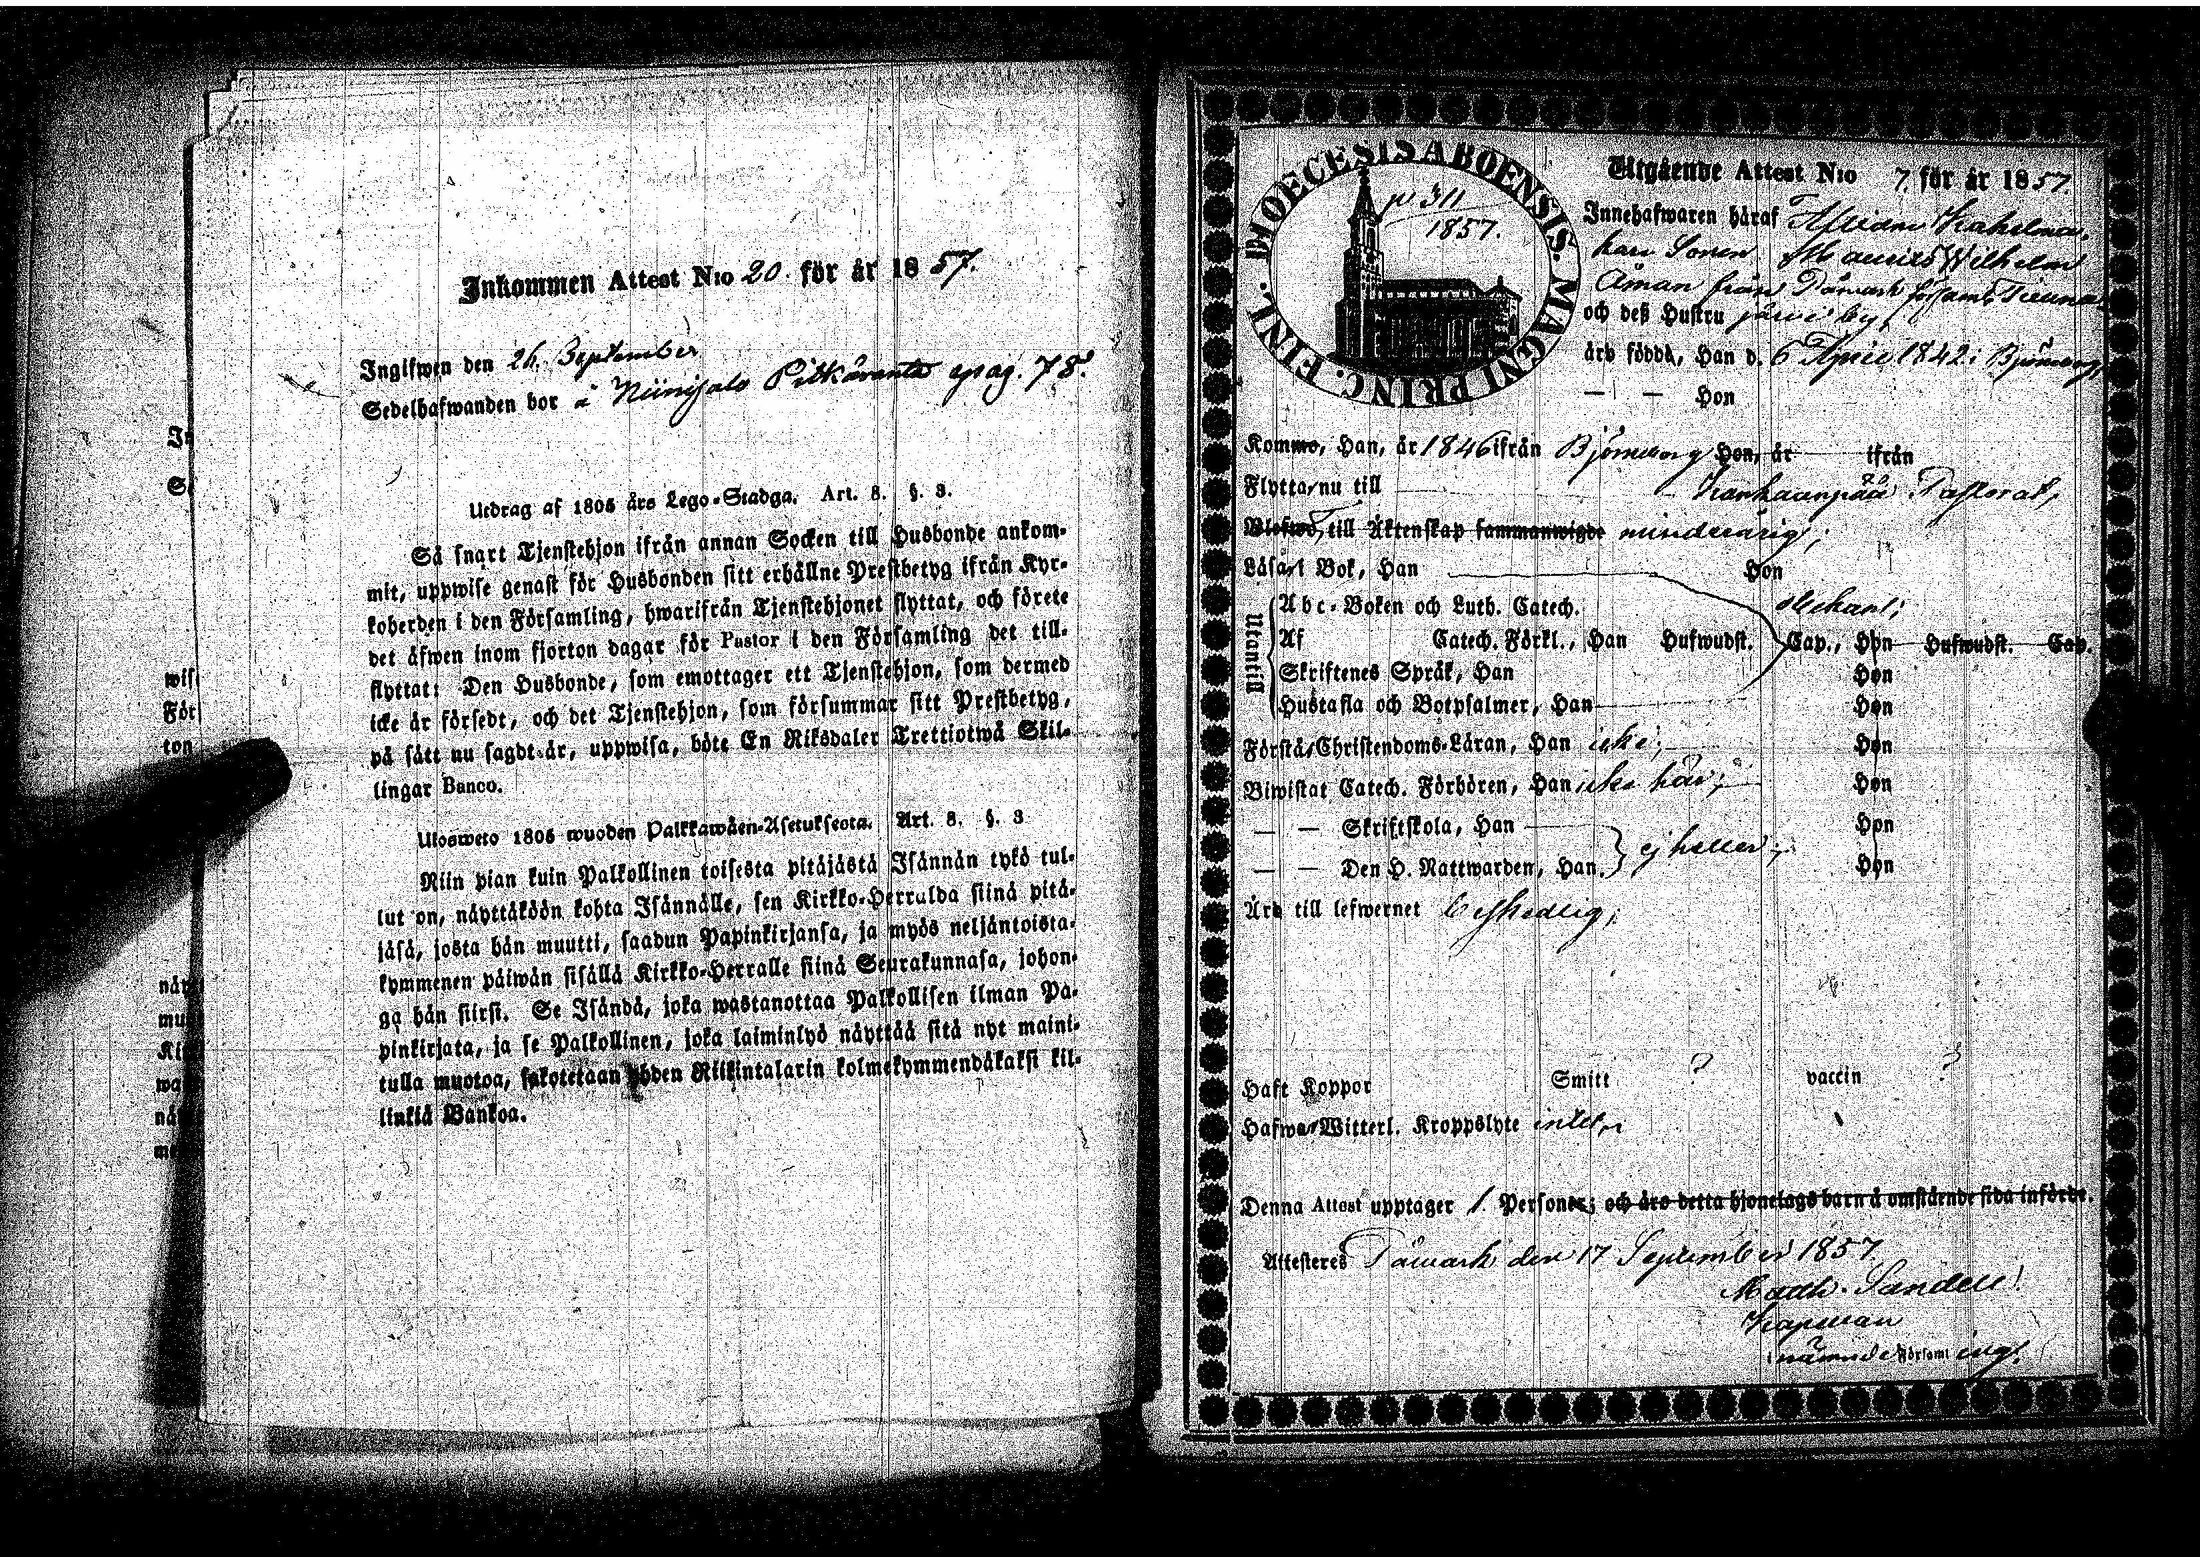 Inkommen Attest N:o 20. för år 1857.
Ingifwen den 26. September
Sedelhafwanden bor å Niinisalo Pitkäranta pag. 78.
Utdrag af 1805 års Lego-Stadga. Art. 8. §. 3.
Så snart Tjenstehjon ifrån annan Socken till Husbonde ankom-
mit, uppwise genast för Husbonden sitt erhållne Prestbetyg ifrån Kyr-
koherden i den Församling, hwarifrån Tjenstehjonet flyttat, och förete
det äfwen inom fjorton dagar för Pastor i den Församling det till-
flyttat: Den Husbonde, som emottager ett Tjenstehjon, som dermed
icke är försedt, och det Tjenstehjon, som försummar sitt Prestbetyg,
på sätt nu sagdt är, uppwisa, böte En Riksdaler Trettiotwå Skil-
lingar Banco.
Ulosweto 1805 wuoden Palkkawäen-Asetuksesta. Art. 8. §. 3
Niin pian kuin Palkollinen toisesta pitäjästä Isännän tykö tul-
lut on, näyttäköön kohta Isännälle, sen Kirkko-Herralda siinä pitä-
jäsä, josta hän muutti, saadun Papinkirjansa, ja myös neljäntoista-
kymmenen päiwän sisällä Kirkko-Herralle siinä Seurakunnasa, johon-
ga hän siirsi. Se Isändä, joka wastanottaa Palkollisen ilman Pa-
pinkirjata, ja se Palkollinen, joka laiminlyö näyttää sitä nyt maini-
tulla muotoa, sakotetaan yhden Riikintalarin kolmekymmendäkaksi kil-
linkiä Bankoa.
DIOECESIS ABOENSIS. MAGNI PRINC. FINL.
p 311
1857.
Utgående Attest N:o 7. för år 1857
Innehafwaren häraf
Sonen Maurits Wilhelm
Åman från Påmark
och deß Hustru järvi by,
äro födda, Han d. 6 April 1842 i Björneborg,
— — Hon
Kommo, Han, år 1846 ifrån Björneborg Hon, år ifrån
Flytta nu till Kankaanpää Pastorat,
till Äktenskap sammanwigde minderårig;
Läsa i Bok, Han Hon
Utantill
Abc-Boken och Luth. Catech.
Af Catech. Förkl., Han Hufwudst. Cap., Hon Hufwudst. Cap.
Skriftenes Språk, Han Hon
Hustafla och Botpsalmer, Han Hon
Förstå Christendoms-Läran, Han icke; Hon
Biwistat Catech. Förhören, Han icke här; Hon
— — Skriftskola, Han Hon
— — Den H. Nattwarden, Han ej heller; Hon
Äro till lefwernet beskedlig;
Haft Koppor Smitt ? vaccin ?
Hafwa Witterl. Kroppslyte intet,
Denna Attest upptager 1. Personer; och äro detta hjonelags barn å omstående sida införde.
Attesteres Påmark den 17 September 1857.
Matth. Sandell
Kapellan
i nämnde Församling.